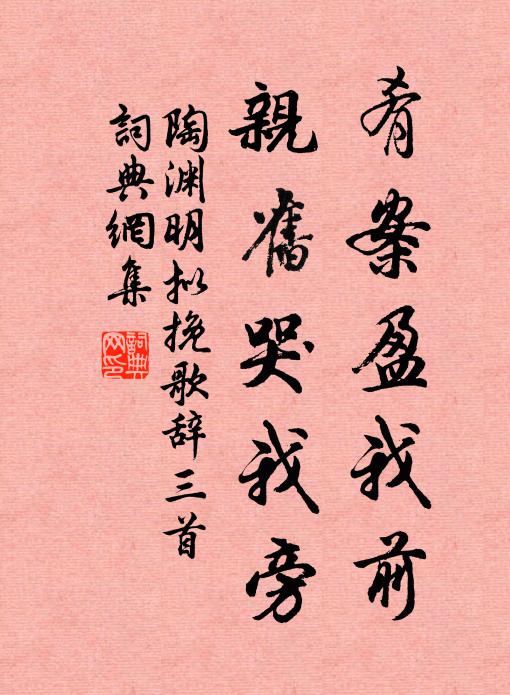 肴案盈我前
親舊哭我旁
陶渊明拟挽歌辞三首
詞典網集
詞典网印